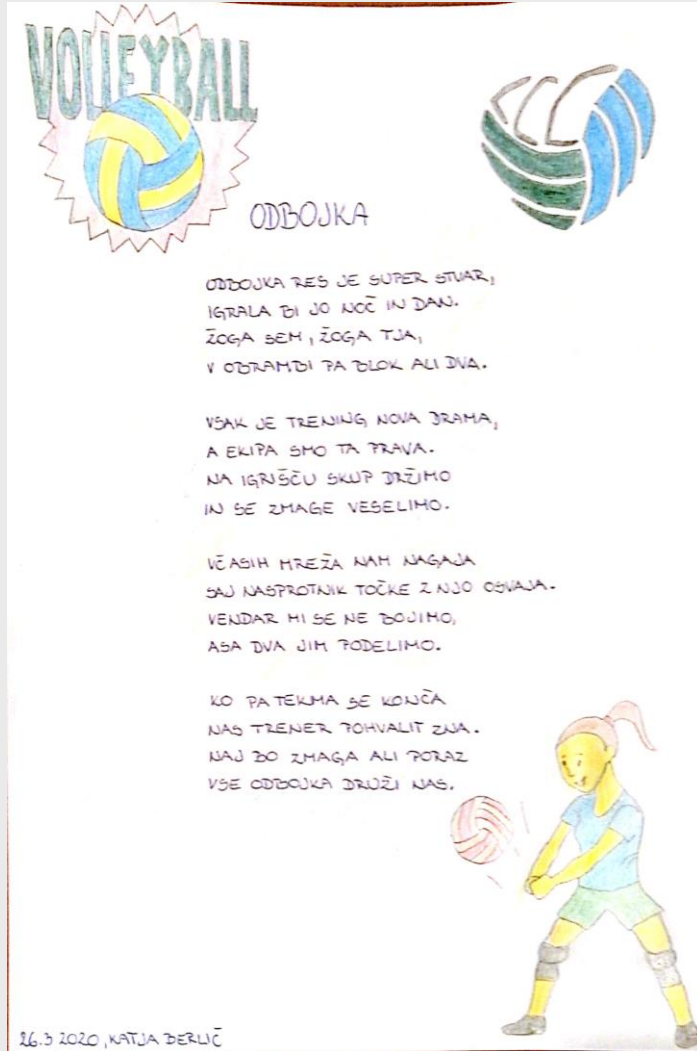 VOLLEYBALL
ODBOJKA
ODBOJKA RES JE SUPER STVAR,
IGRALA BI JO NOČ IN DAN.
ŽOGA SEM, ŽOGA TJA,
V OBRAMBI PA BLOK ALI DVA.
VSAK JE TRENING NOVA DRAMA,
A EKIPA SMO TA PRAVA.
NA IGRIŠČU SKUP DRŽIMO
IN SE ZMAGE VESELIMO.
VČASIH MREŽA NAM NAGAJA
SAJ NASPROTNIK TOČKE Z NJO OSVAJA.
VENDAR MI SE NE BOJIMO,
ASA DVA JIM PODELIMO.
KO PA TEKMA SE KONČA
NAS TRENER POHVALIT ZNA.
NAJ BO ZMAGA ALI PORAZ
VSE ODBOJKA DRUŽI NAS.
26.3 2020, KATJA BERLIČ